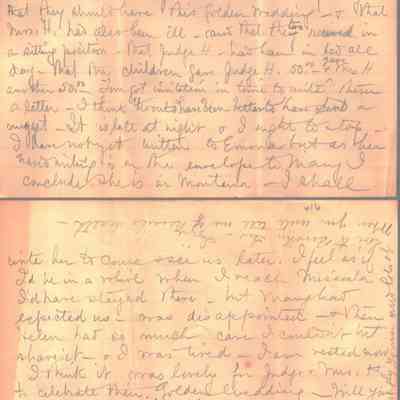 that they should have this Golden Wedding - & that
Mrs. H. had also been ill - and that they too received in
a sitting position - that Judge H. had been in bed all
day - That the children gave Judge H. 50.00 - & gave Mrs H
another 50.00 - I'm got invitation in time to write them
a letter - I think it would have been better to have sent a
- It is late at night & I ought to stop -
I have not yet written to Emma but as her
handwriting is on the envelope to Mary I
conclude she is in Montana - I shall
416
write her to come & see us later. I feel as if
I'd be in a whirl when I reach Missoula
I'd have stayed there - but Mary had
expected us - was disappointed - & then
Helen had so much care I couldn't let
share it - & I was tired - I am rested now
I think it was lovely for Judge & Mrs. H
to celebrate their Golden Wedding - Will you